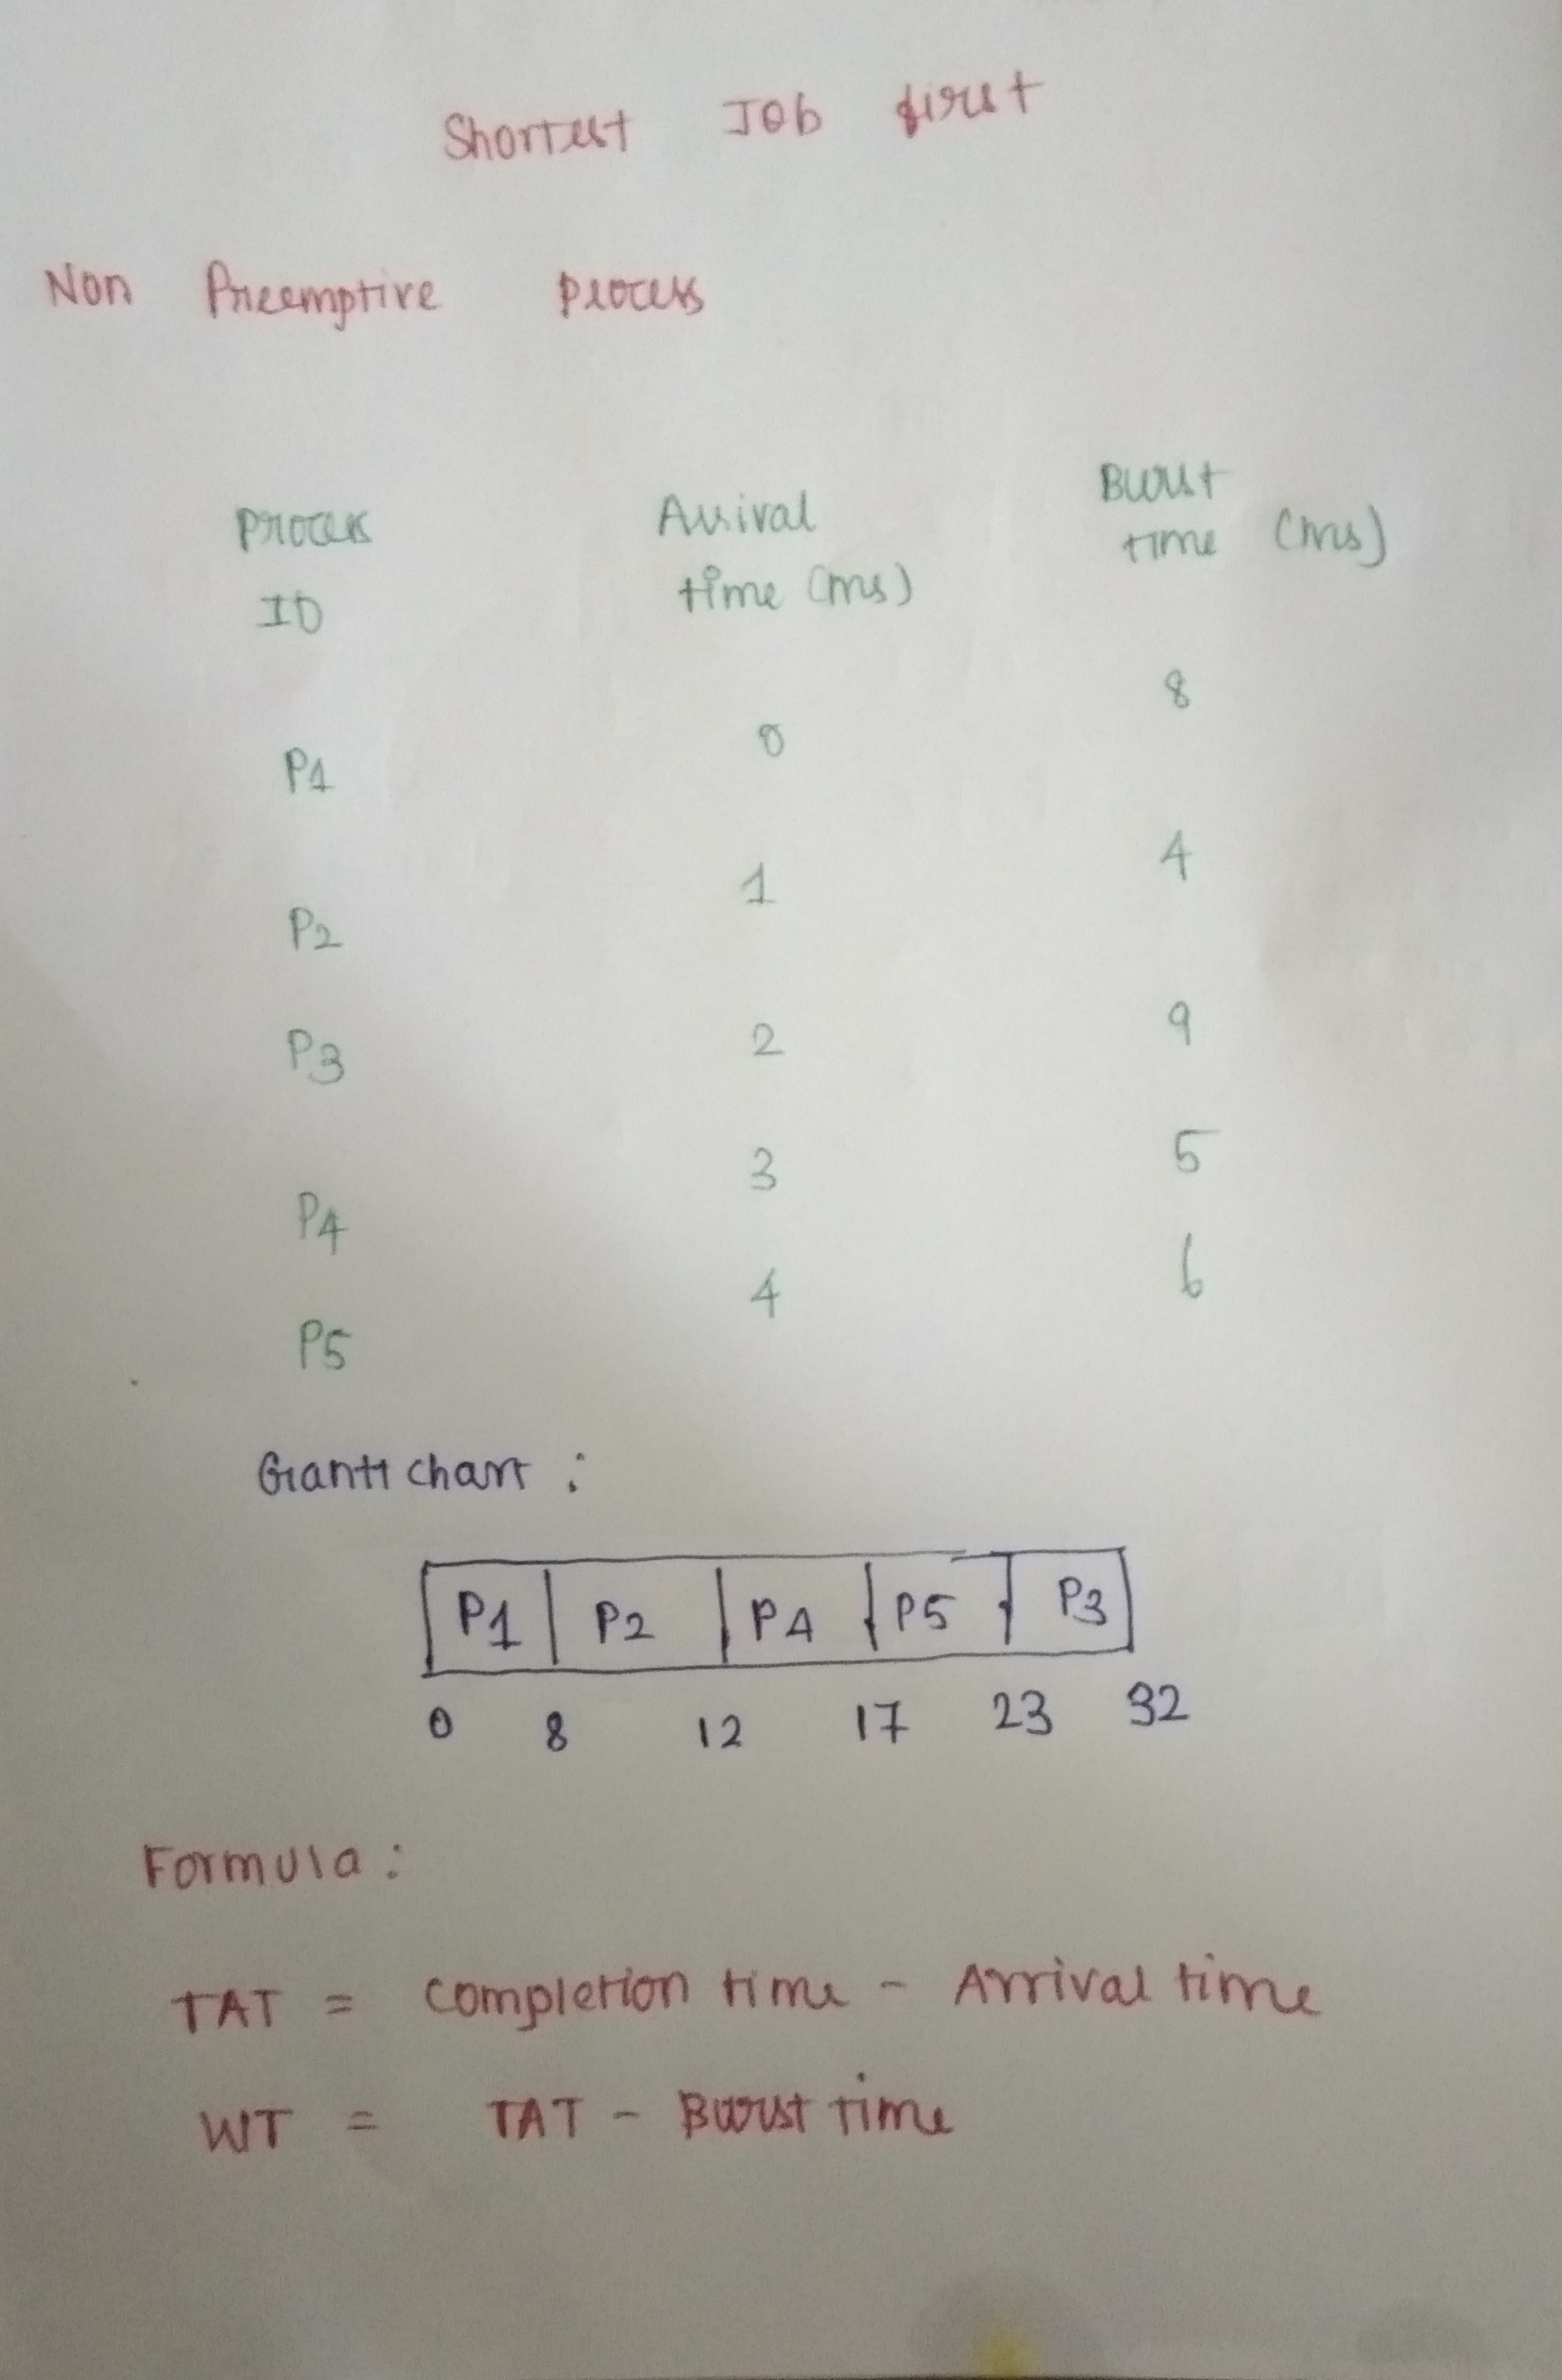 Shortest Job first
Non Preemptive process
Process ID Arrival time (ms) Burst time (ms)
P1 0 8
P2 1 4
P3 2 9
P4 3 5
P5 4 6
Gantt chart :
P1 P2 P4 P5 P3
0 8 12 17 23 32
Formula :
TAT = completion time - Arrival time
WT = TAT - Burst time